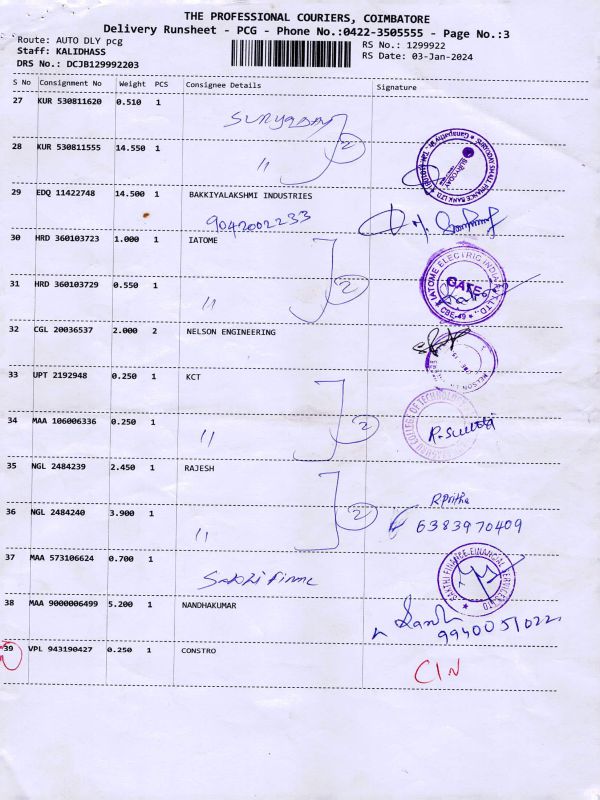 THE PROFESSIONAL COURIERS, COIMBATORE
Delivery Runsheet - PCG - Phone No.:0422-3505555 - Page No.:3
Route: AUTO DLY pcg
Staff: KALIDHASS
DRS No.: DCJB129992203
RS No.: 1299922
RS Date: 03-Jan-2024
S No Consignment No Weight PCS Consignee Details Signature
27 KUR 530811620 0.510 1
28 KUR 530811555 14.550 1 〃
2
29 EDQ 11422748 14.500 1 BAKKIYALAKSHMI INDUSTRIES
9042002233
30 HRD 360103723 1.000 1 IATOME
31 HRD 360103729 0.550 1 〃
2
IATOME ELECTRIC INDIA
GATE
CBE-49
32 CGL 20036537 2.000 2 NELSON ENGINEERING
33 UPT 2192948 0.250 1 KCT
34 MAA 106006336 0.250 1 〃
2
COLLEGE OF TECHNOLOGY
35 NGL 2484239 2.450 1 RAJESH
36 NGL 2484240 3.900 1 〃
2
6383970409
37 MAA 573106624 0.700 1
SAKTHI FINANCE FINANCIAL SERVICES LTD
38 MAA 9000006499 5.200 1 NANDHAKUMAR
9940051022
39 VPL 943190427 0.250 1 CONSTRO
CIN